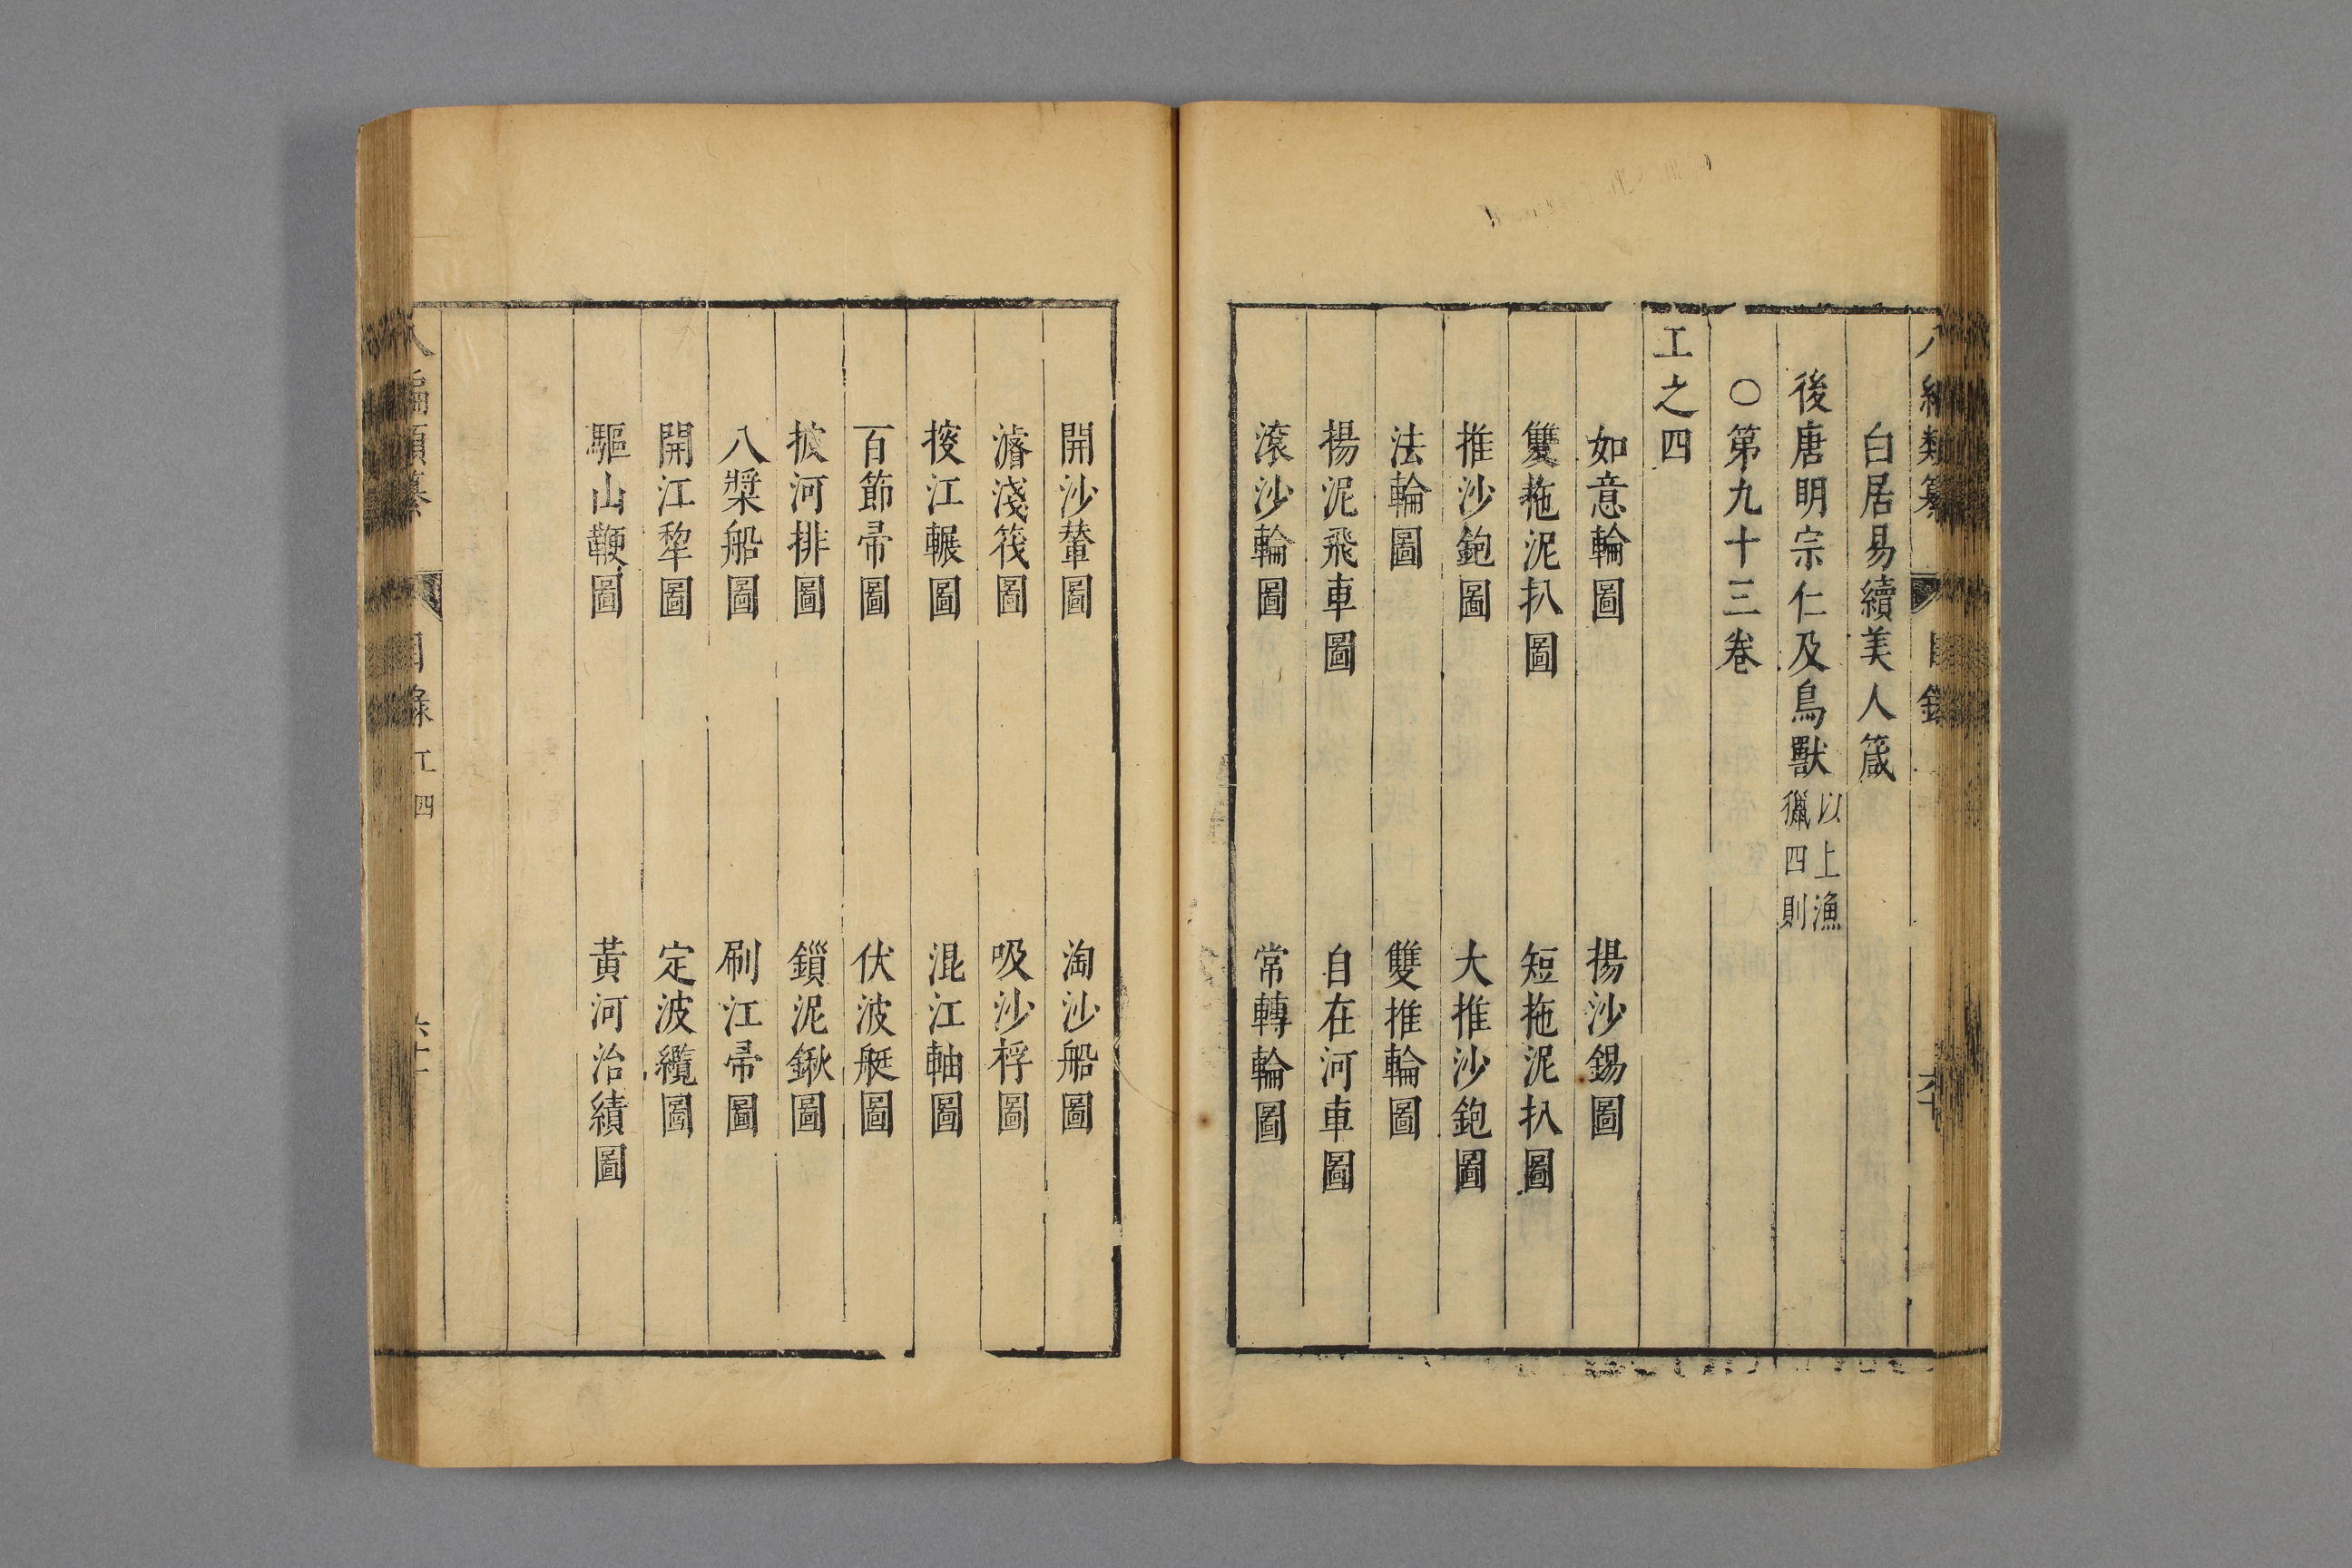 白居易續美人箴
後唐明宗仁及鳥獸 以上漁獵四則
○第九十三卷
工之四
如意輪圖 揚沙錫圖
雙拖泥扒圖 短拖泥扒圖
推沙鉋圖 大推沙鉋圖
法輪圖 雙推輪圖
揚泥飛車圖 自在河車圖
滾沙輪圖 常轉輪圖
開沙輦圖 淘沙船圖
濬淺筏圖 吸沙桴圖
江輾圖 混江軸圖
百節帚圖 伏波艇圖
河排圖 鎻泥鍬圖
八槳船圖 刷江帚圖
開江犂圖 定波纜圖
驅山鞭圖 黃河治績圖
八編類纂 目錄 工四